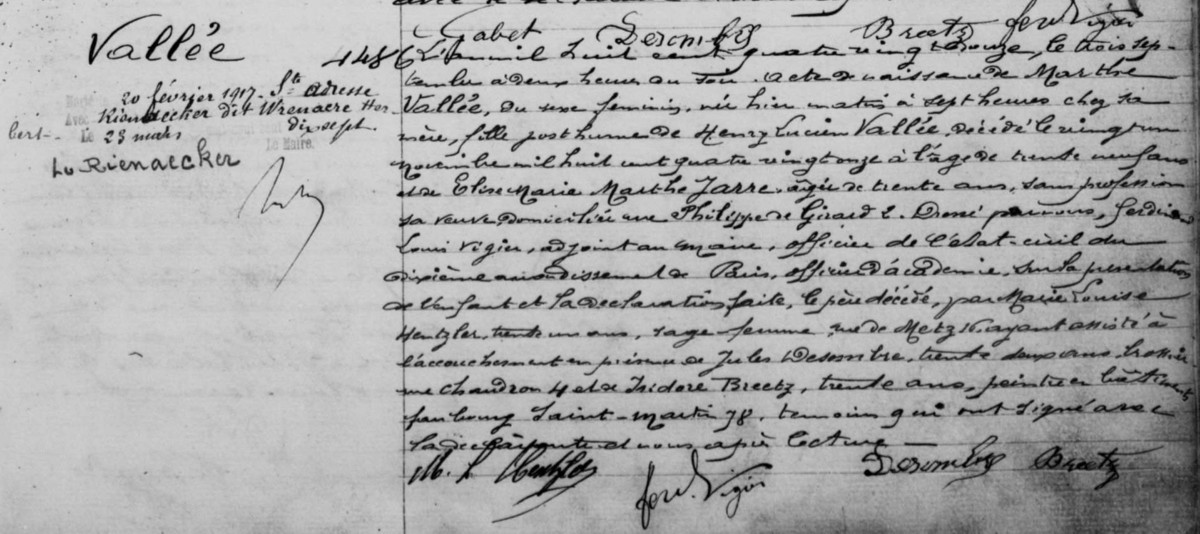 Gabet Desombre Breetz ferd. Vigier
Vallée
4486
20 février 1917. Ste adresse
Avec Rienaecker dit Wrenacre Her
bert
Le 23 mars dix sept.
Le Maire.
Lu Rienaecker
L'an mil huit cent quatre vingt douze, le trois sep-
tembre à deux heures du soir. acte de naissance de Marthe
Vallée, du sexe féminin, née hier matin à sept heures chez sa
mère, fille posthume de Henry Lucien Vallée, décédé le vingt un
novembre mil huit cent quatre vingt onze à l'âge de trente neuf ans
et de Elise Marie Marthe Jarre, âgée de trente ans, sans profession
sa veuve domiciliée rue Philippe de Girard 2. Dressé par nous, ferdinand
Louis Vigier, adjoint au maire, officier de l'état-civil du
dixième arrondissement de Paris, officier d'académie, sur la présentation
de l'enfant et la déclaration faite, le père décédé, par Marie Louise
Hentzler, trente un ans, sage-femme, rue de Metz 16, ayant assisté à
l'accouchement en présence de Jules Desombre, trente deux ans, brossier
rue Chaudron 4 et de Isidore Breetz, trente ans, peintre en bâtiments
faubourg Saint-Martin 78, témoins qui ont signé avec
la déclarante et nous après lecture —
M. L. Hentzler ferd. Vigier Desombre Breetz